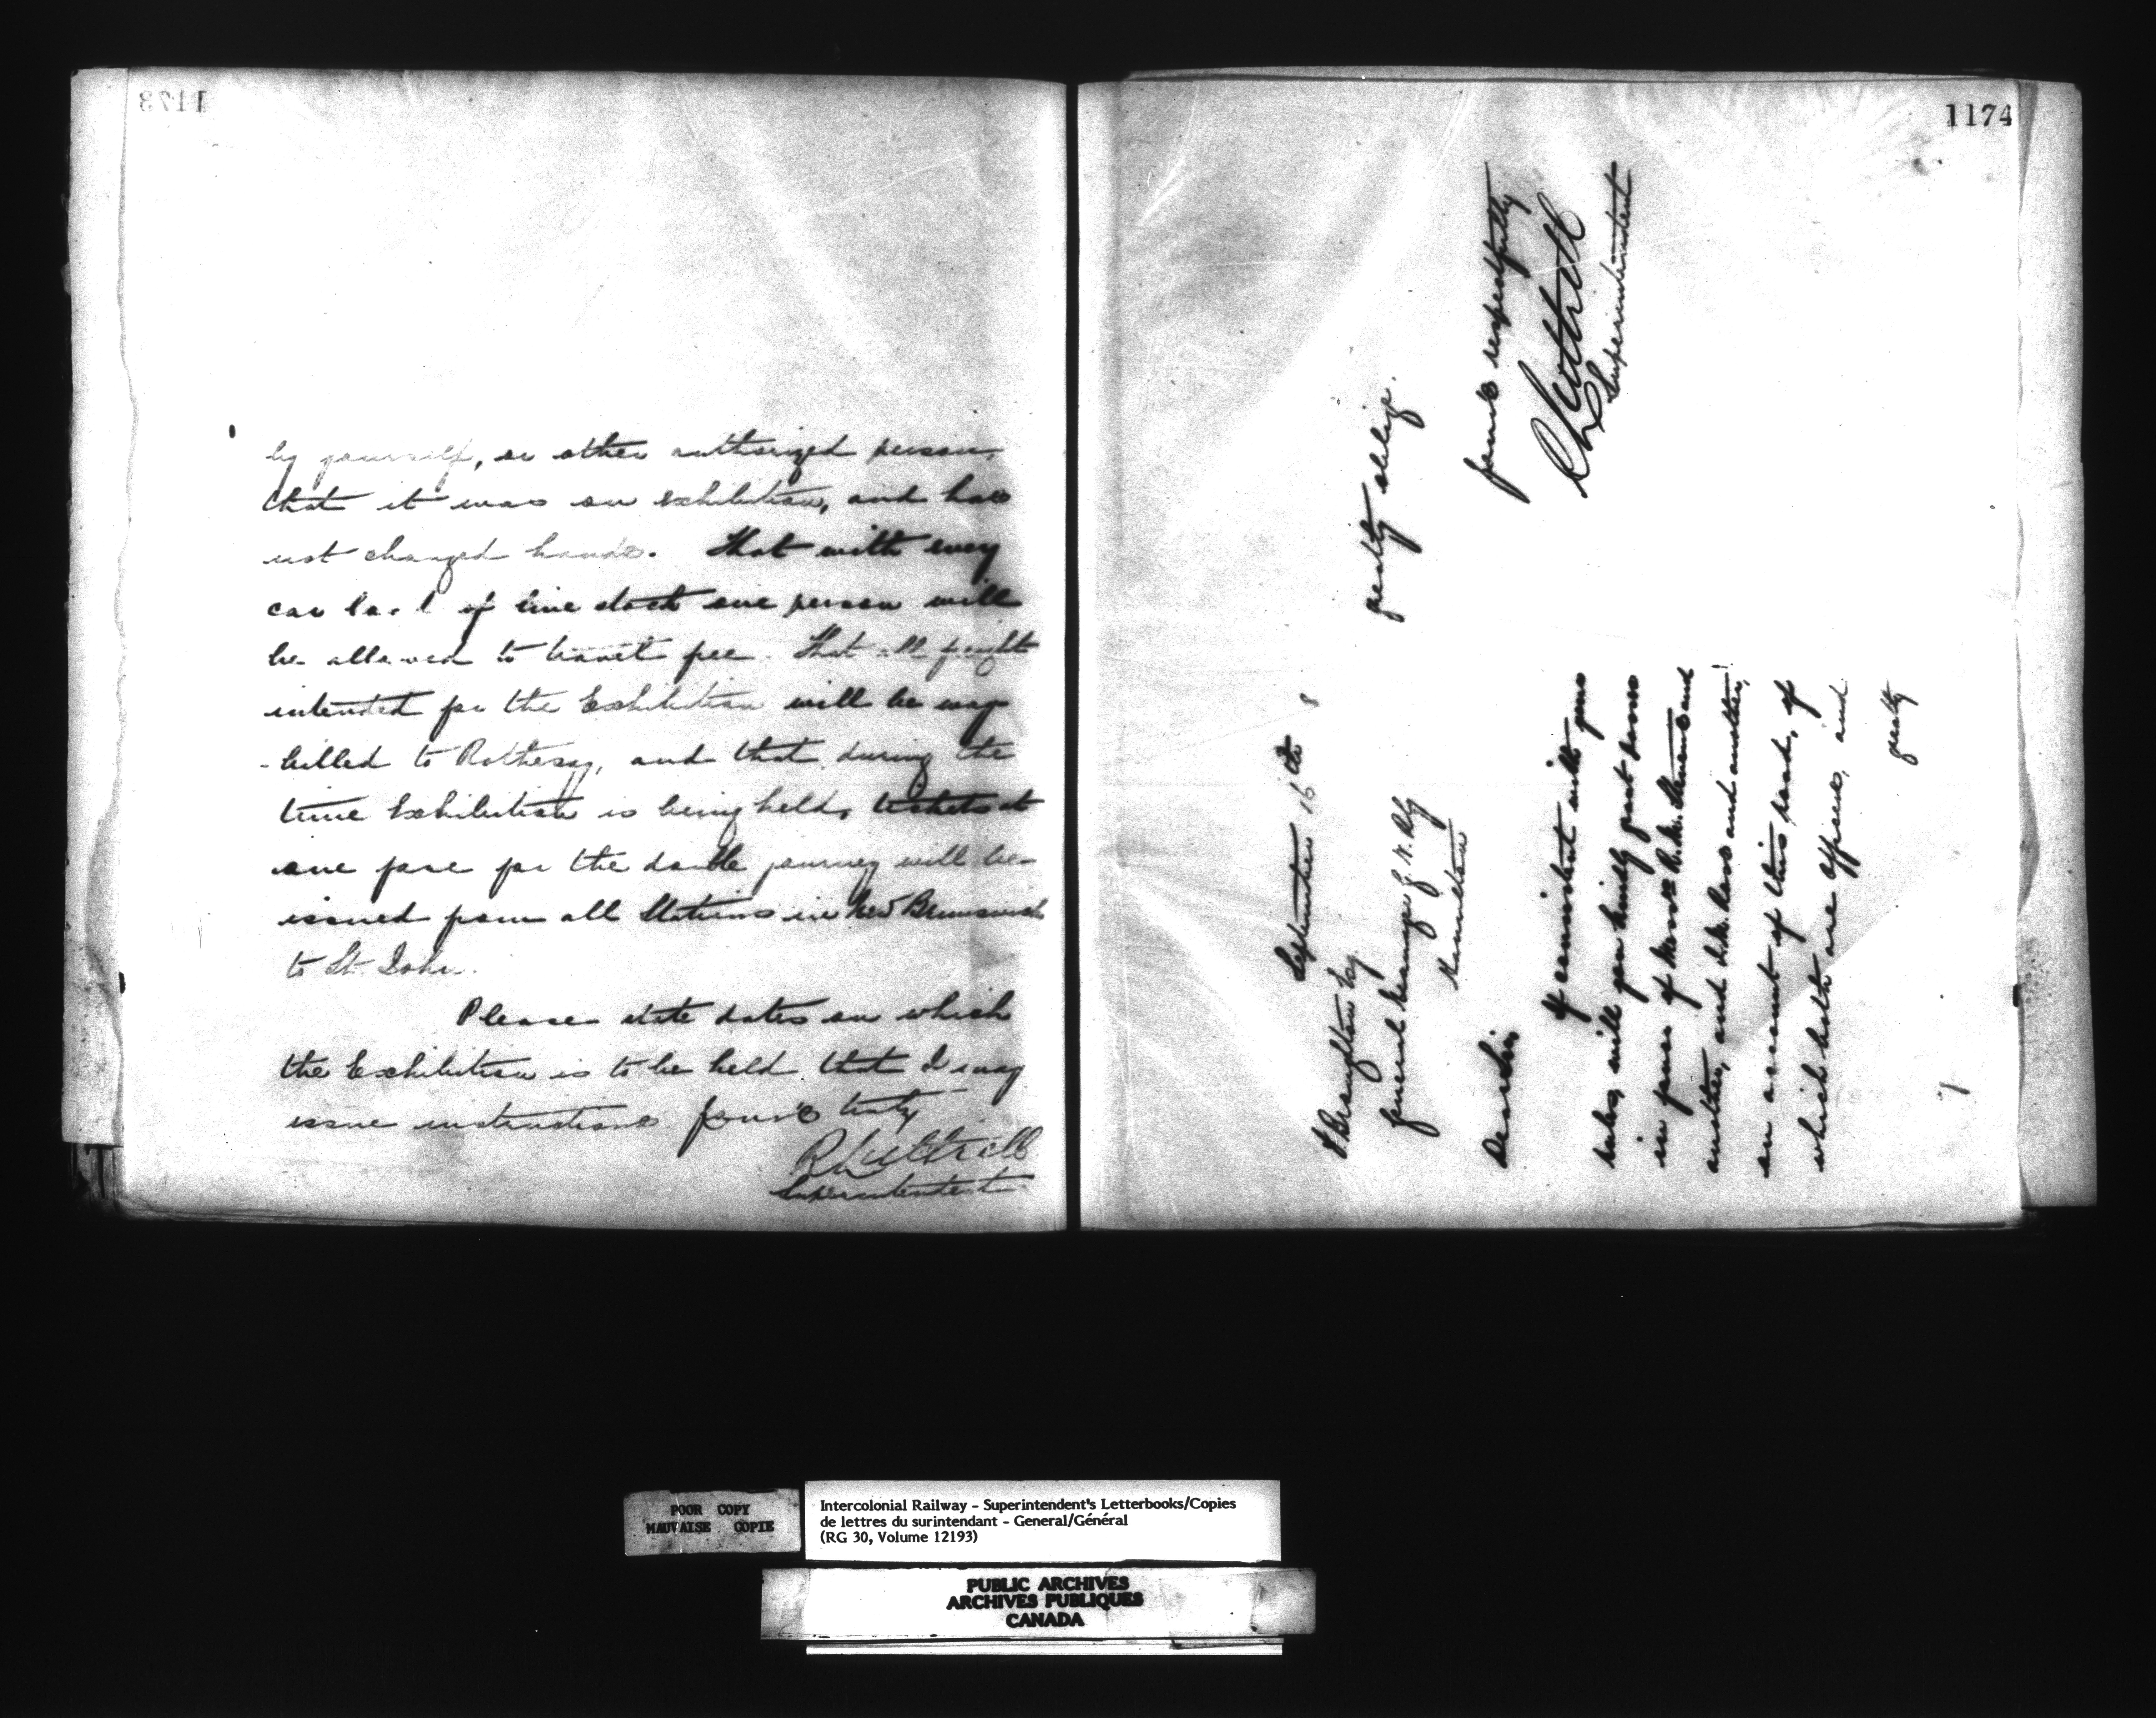 1173
by yourself, or other authorized person,
that it was on exhibition, and has
not changed hands. That with every
car load of live stock one person will
be allowed to travel free. That all freight
intended for the Exhibition will be way
-billed to Rothesay, and that during the
time Exhibition is being held, tickets at
one fare for the double journey will be
issued from all Stations in New Brunswick
to St. John.
Please state dates on which
the Exhibition is to be held that I may
issue instructions. Yours truly
R Luttrell
Superintendent
1174
September 16th 8
Broughton Esq.
General Manager G. W. Rly
Hamilton
Dear Sir
If consistent with your
rules, will you kindly grant passes
in favor of Messrs Stevens and
another, and Ross and another,
on account of this road, of
which both are officers, and
greatly
greatly oblige.
Yours respectfully
R Luttrell
Superintendent
POOR COPY
MAUVAISE COPIE
Intercolonial Railway - Superintendent's Letterbooks/Copies
de lettres du surintendant - General/Général
(RG 30, Volume 12193)
PUBLIC ARCHIVES
ARCHIVES PUBLIQUES
CANADA